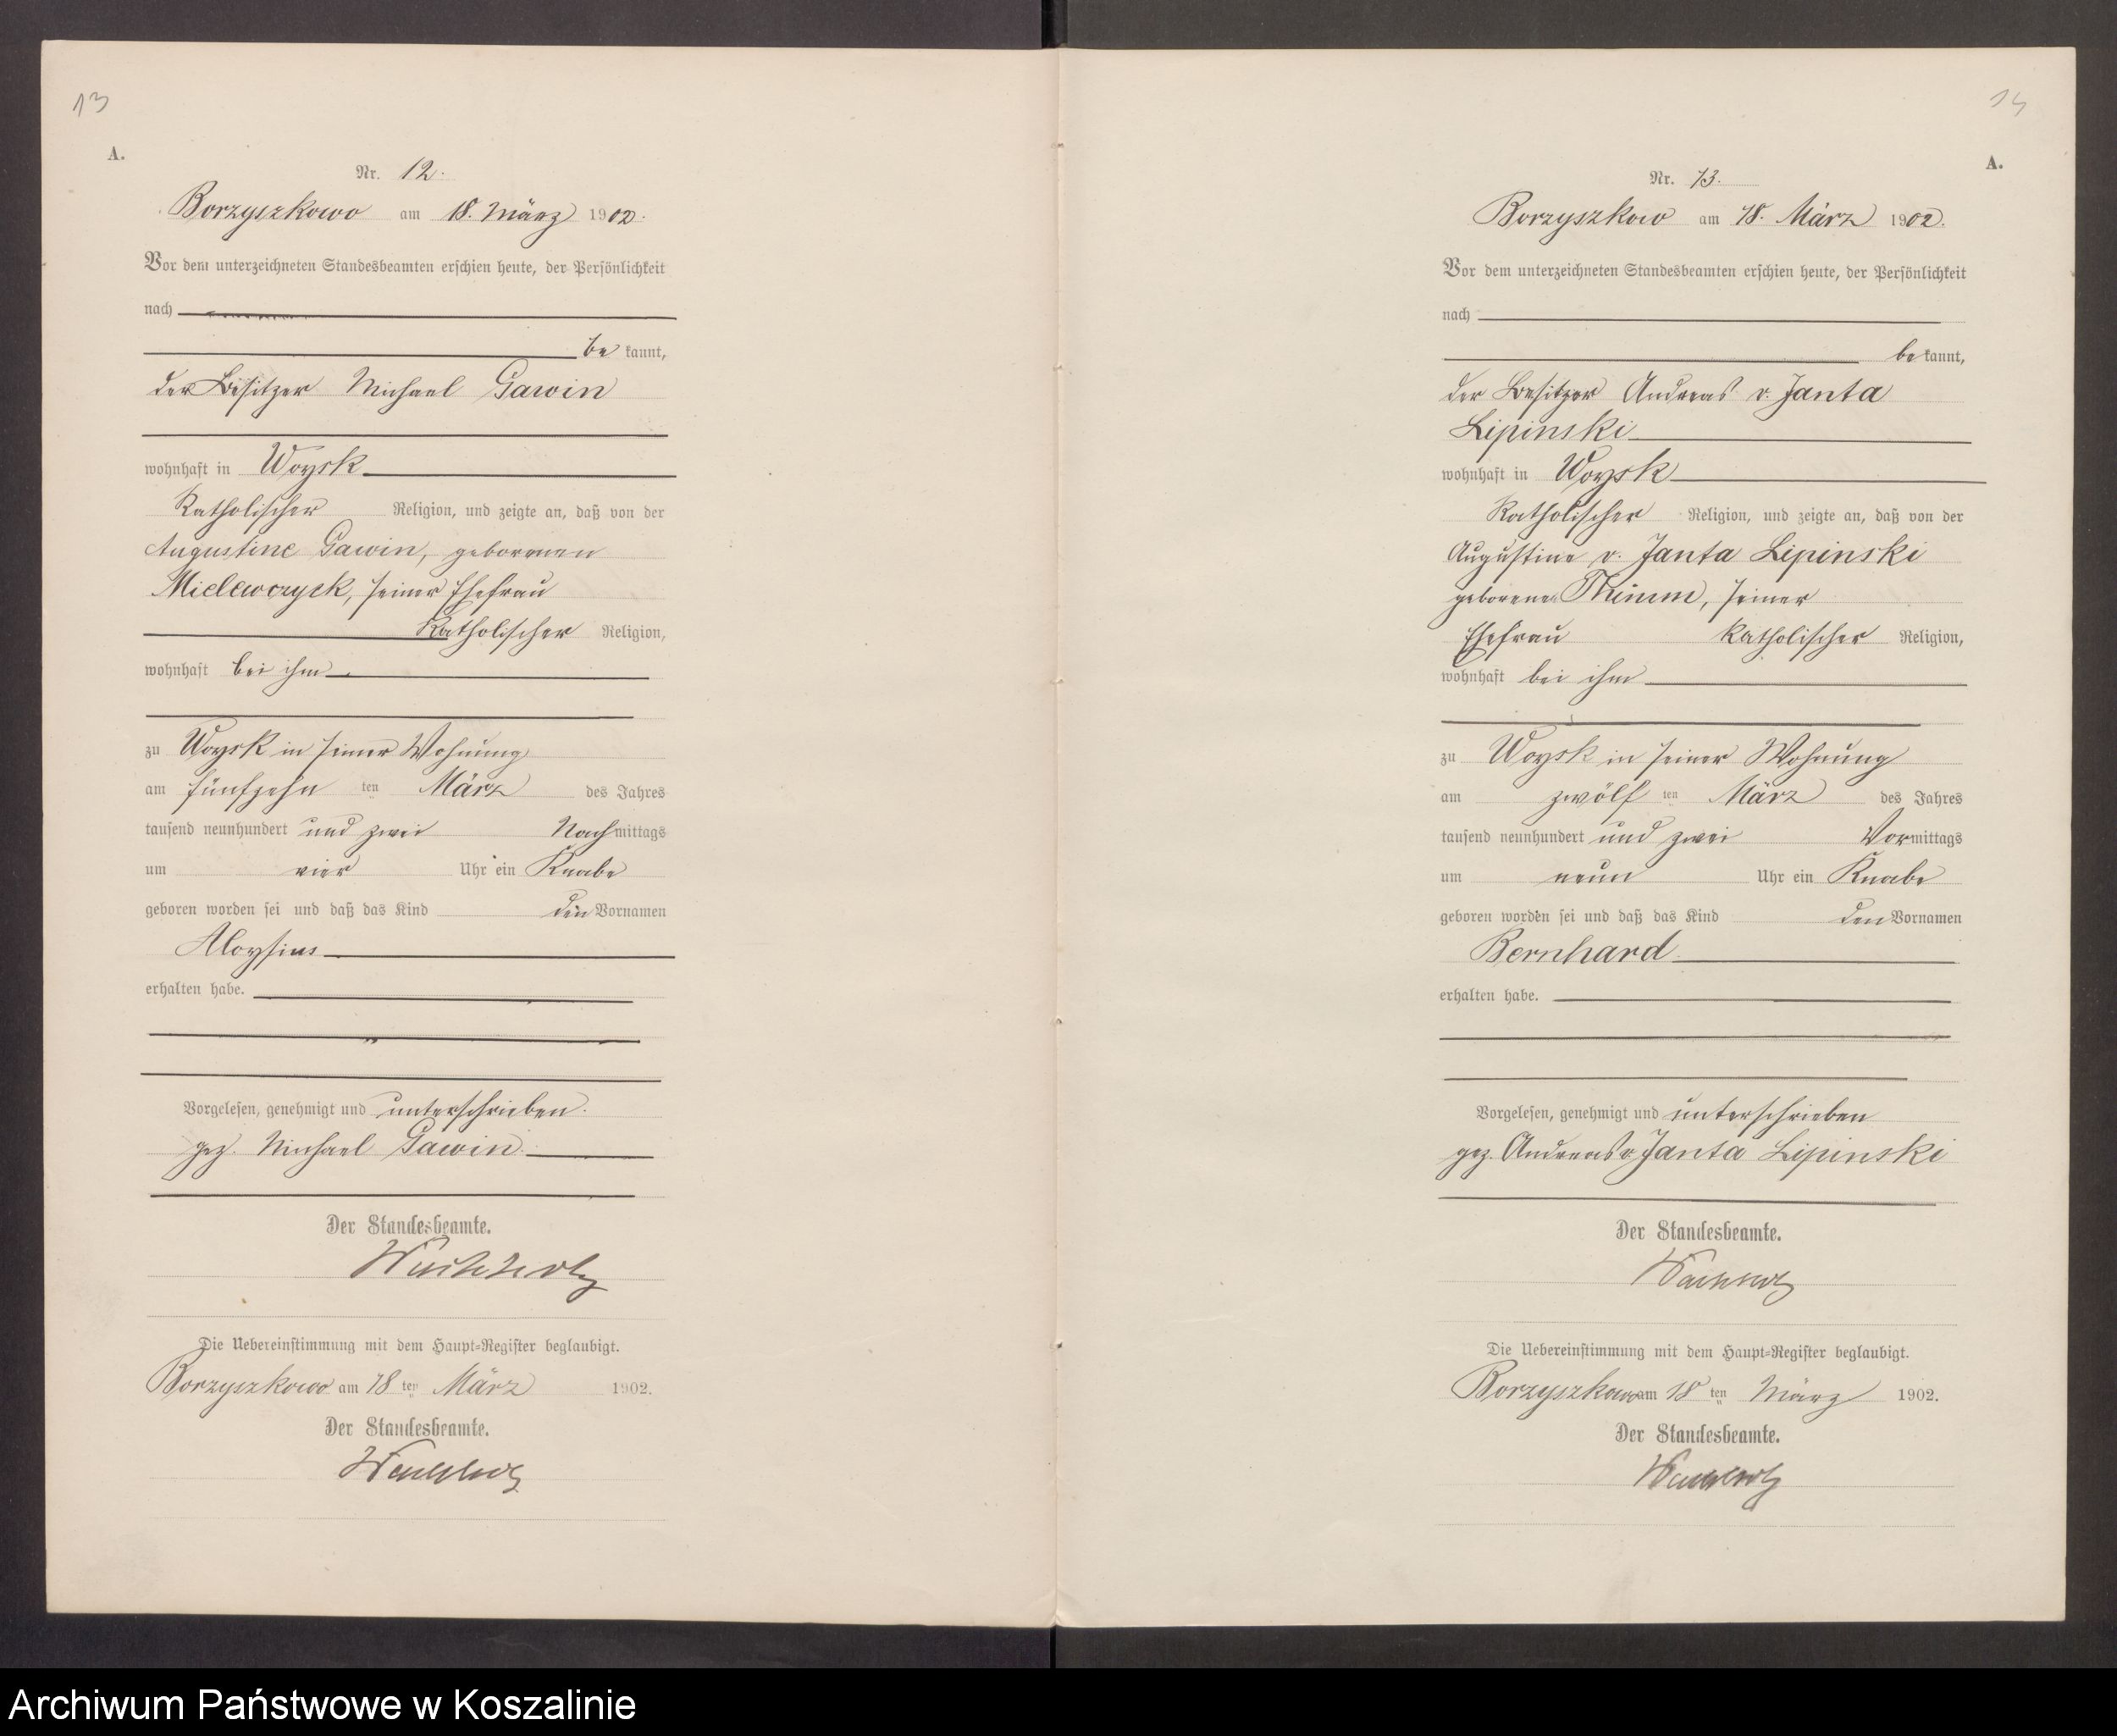 13
A.
Nr. 12.
Borzyszkowo am 18. März 1902.
Vor dem unterzeichneten Standesbeamten erschien heute, der Persönlichkeit
nach
be kannt,
der Besitzer Michael Gawin
wohnhaft in Woysk
Katholischer Religion, und zeigte an, daß von der
Augustine Gawin, geborenen
Mielewczyk, seiner Ehefrau
Katholischer Religion,
wohnhaft bei ihm
zu Woysk in seiner Wohnung
am fünfzehn ten März des Jahres
tausend neunhundert und zwei Nachmittags
um vier Uhr ein Knabe
geboren worden sei und daß das Kind den Vornamen
Aloysius
erhalten habe.
Vorgelesen, genehmigt und unterschrieben.
gez. Michael Gawin.
Der Standesbeamte.
Die Uebereinstimmung mit dem Haupt-Register beglaubigt.
Borzyszkowo am 18 ten März 1902.
Der Standesbeamte.
14
A.
Nr. 13.
Borzyszkow am 18. März 1902.
Vor dem unterzeichneten Standesbeamten erschien heute, der Persönlichkeit
nach
be kannt,
der Besitzer Andreas v. Janta
Lipinski
wohnhaft in Woysk
Katholischer Religion, und zeigte an, daß von der
Augustine v. Janta Lipinski
geborene seiner
Ehefrau Katholischer Religion,
wohnhaft bei ihm
zu Woysk in seiner Wohnung
am zwölf ten März des Jahres
tausend neunhundert und zwei Vormittags
um neun Uhr ein Knabe
geboren worden sei und daß das Kind den Vornamen
Bernhard
erhalten habe.
Vorgelesen, genehmigt und unterschrieben
gez. Andreas v Janta Lipinski
Der Standesbeamte.
Die Uebereinstimmung mit dem Haupt-Register beglaubigt.
Borzyszkowo am 18 ten März 1902.
Der Standesbeamte.
Archiwum Państwowe w Koszalinie